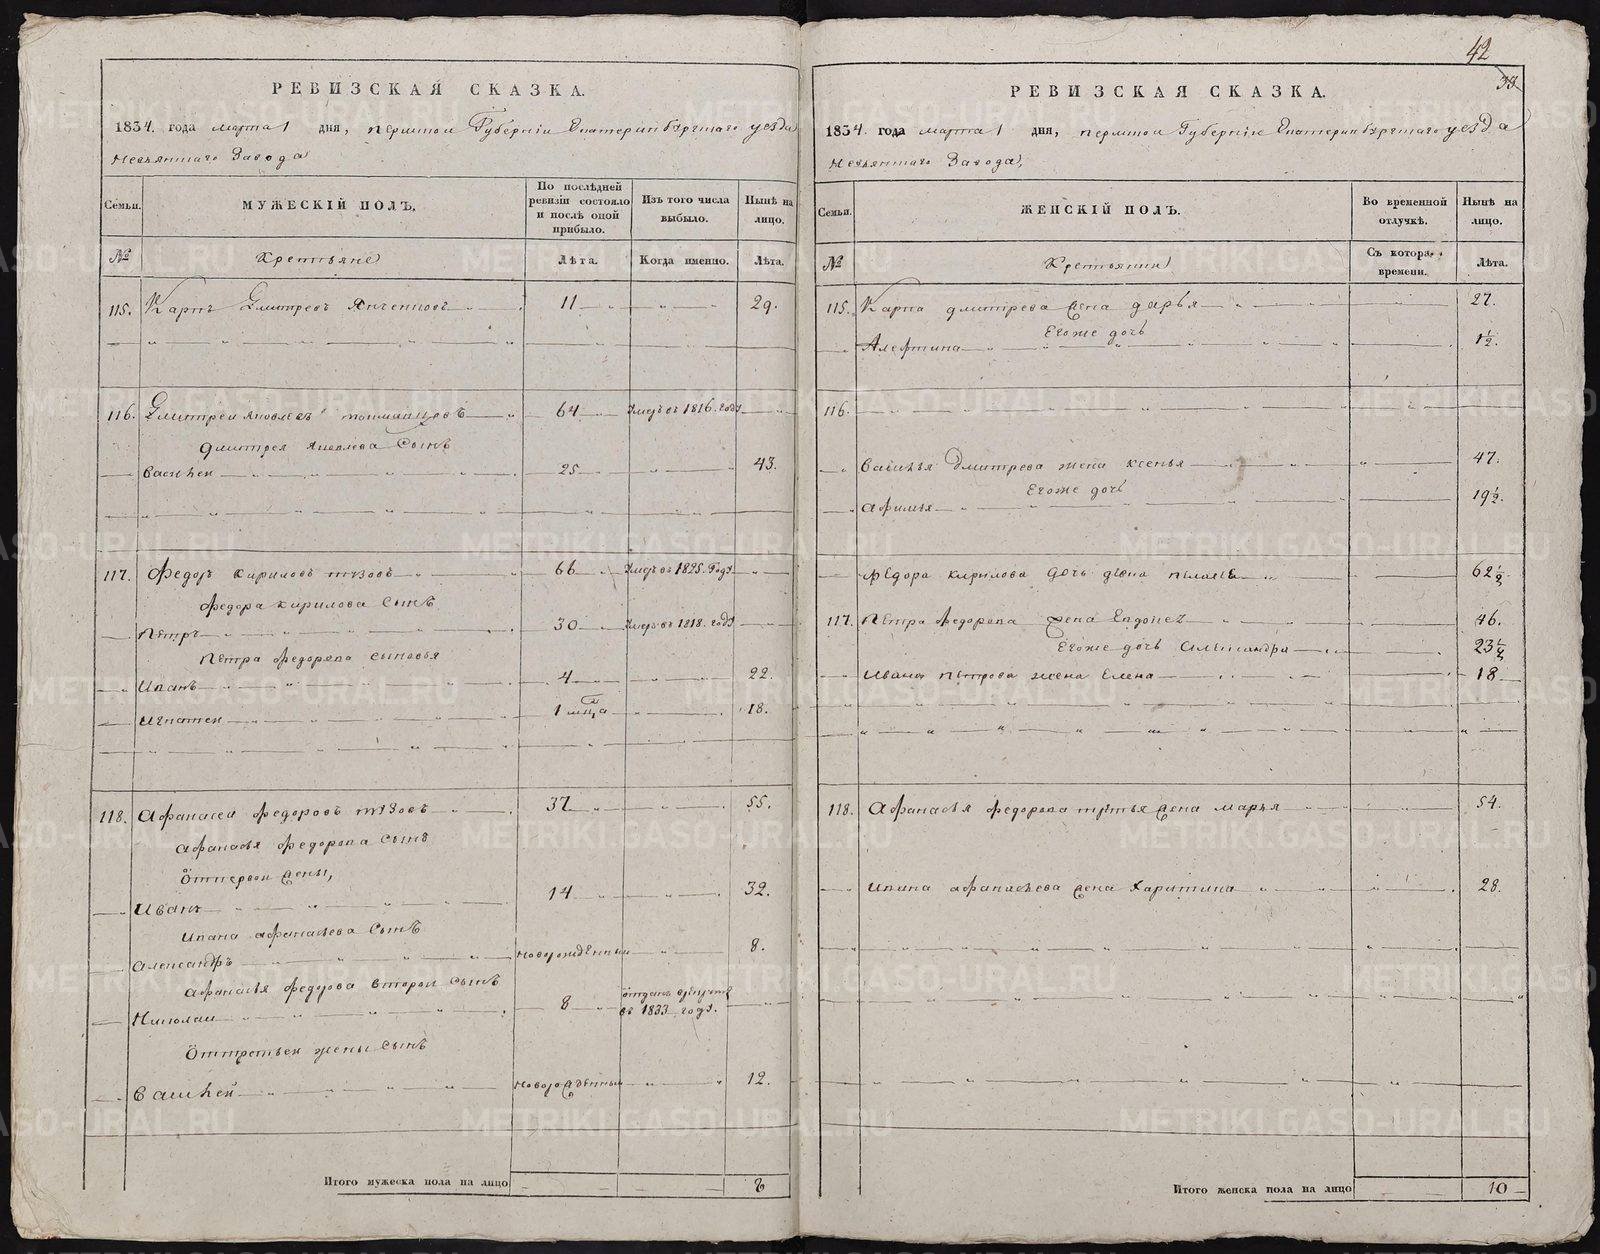 42
33
РЕВИЗСКАЯ СКАЗКА.
1834. года марта 1 дня, пермской Губерніи Екатеринбургскаго уезда
Невьянскаго Завода
Семьи. МУЖЕСКІЙ ПОЛЪ. По послѣдней ревизіи состояло и послѣ оной прибыло. Изъ того числа выбыло. Нынѣ на лицо.
№ Крестьяне Лѣта. Когда именно. Лѣта.
115. Карпъ Дмитревъ 11 29.
116. Дмитреи Яковлевъ 64 Умеръ въ 1816. году
Дмитрея Яковлева Сынъ
Василей 25 43.
117. Федоръ Кириловъ 66 Умеръ въ 1825. Году
Федора Кирилова Сынъ
Петръ 30 Умеръ въ 1818. году
Петра Федорова сыновья
Иванъ 4 22.
Игнатей 1 м-ца 18.
118. Афанасеи Федоровъ 37 55.
Афанасья Федорова Сынъ
Отпервои жены,
Иванъ 14 32.
Ивана Афанасьева Сынъ
Александръ Новорожденныи 8.
Афанасья Федорова Второи Сынъ
Николаи 8 отданъ врекруты въ 1833 году.
Оттретьеи жены сынъ
Василей Новорожденныи 12.
Итого мужеска пола на лицо 8
РЕВИЗСКАЯ СКАЗКА.
1834. года марта 1 дня, пермской Губерніи Екатеринбургскаго уезда
Невьянскаго Завода,
Семьи. ЖЕНСКІЙ ПОЛЪ. Во временной отлучкѣ. Нынѣ на лицо.
№ Крестьянки Съ котора времени. Лѣта.
115. Карпа Дмитрева жена Дарья 27.
Егоже дочь
Алефтина 1½.
116.
Василья Дмитрева жена Ксенья 47.
Егоже дочь
Афимья 19½.
Федора Кирилова дочь девка 62½.
117. Петра Федорова жена 46.
Егоже дочь Александра 23½
Ивана Петрова жена Елена 18
118. Афанасья Федорова третья жена Марья 54.
Ивана Афанасьева жена Харитина 28.
Итого женска пола на лицо 10
METRIKI.GASO-URAL.RU